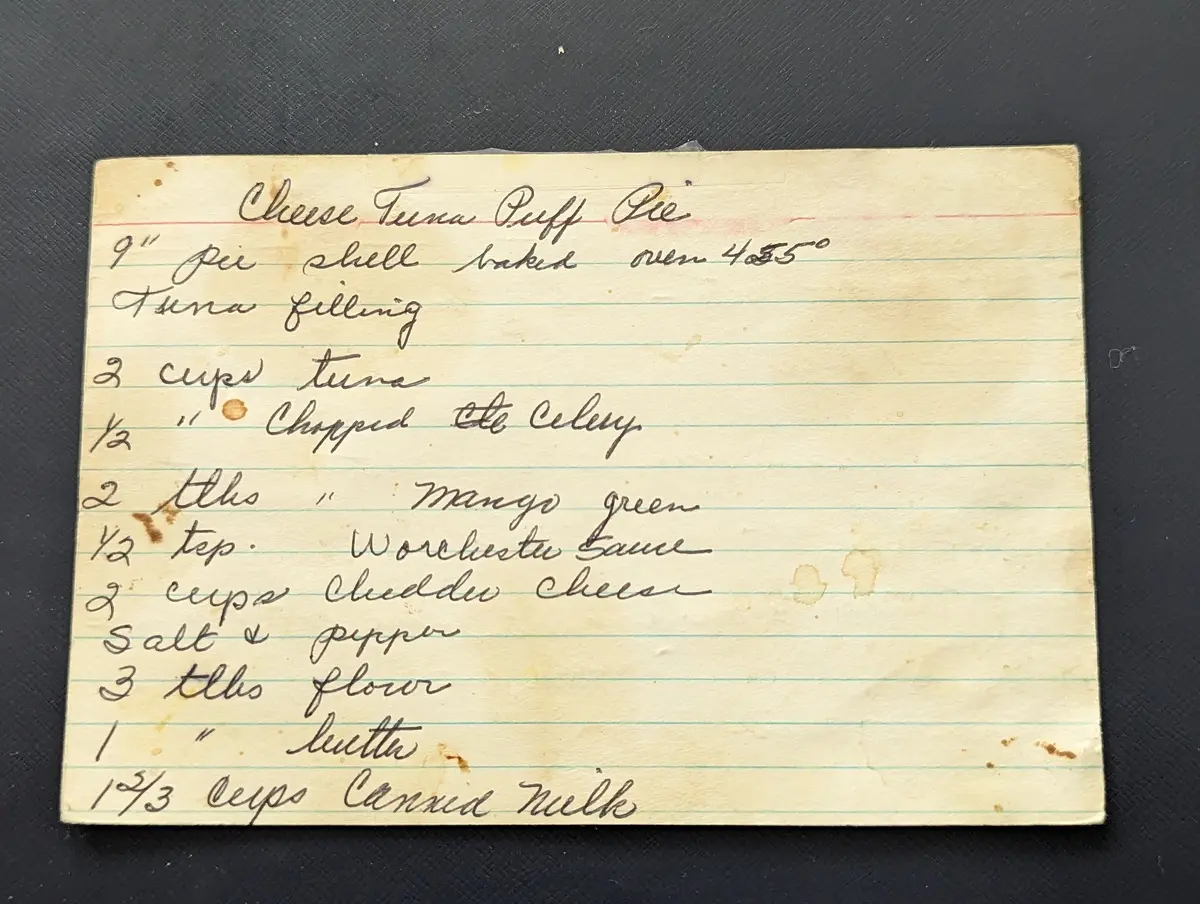 Cheese Tuna Puff Pie
9" pie shell baked oven 455°
Tuna filling
2 cups tuna
1/2 " Chopped Celery
2 tlbs " Mango green
1/2 tsp. Worchester Sauce
2 cups Chedder cheese
Salt & pepper
3 tlbs flour
1 " butter
1 2/3 Cups Canned Milk